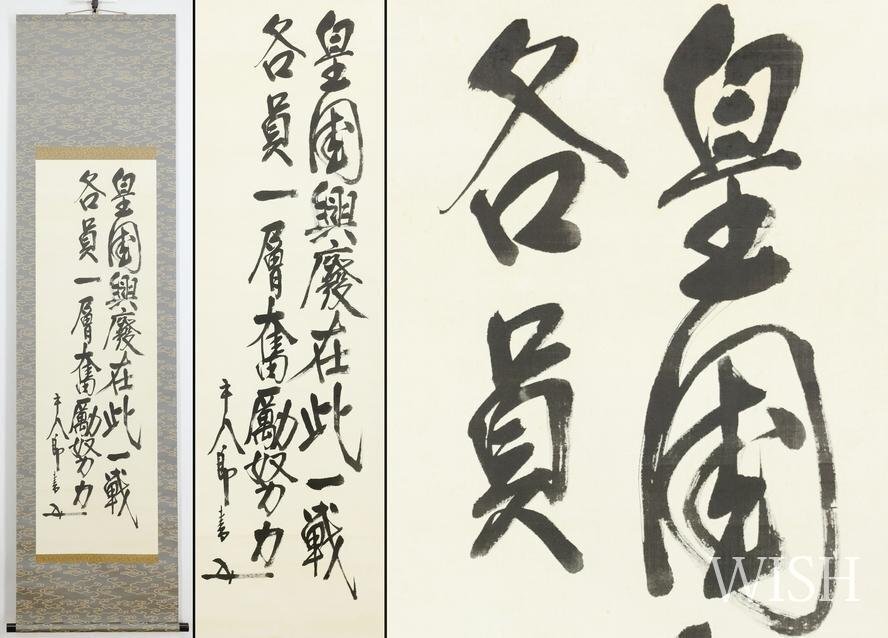 皇國興廢在此一戰
各員一層奮勵努力
皇國興廢在此一戰
各員一層奮勵努力
皇國
各員
WISH